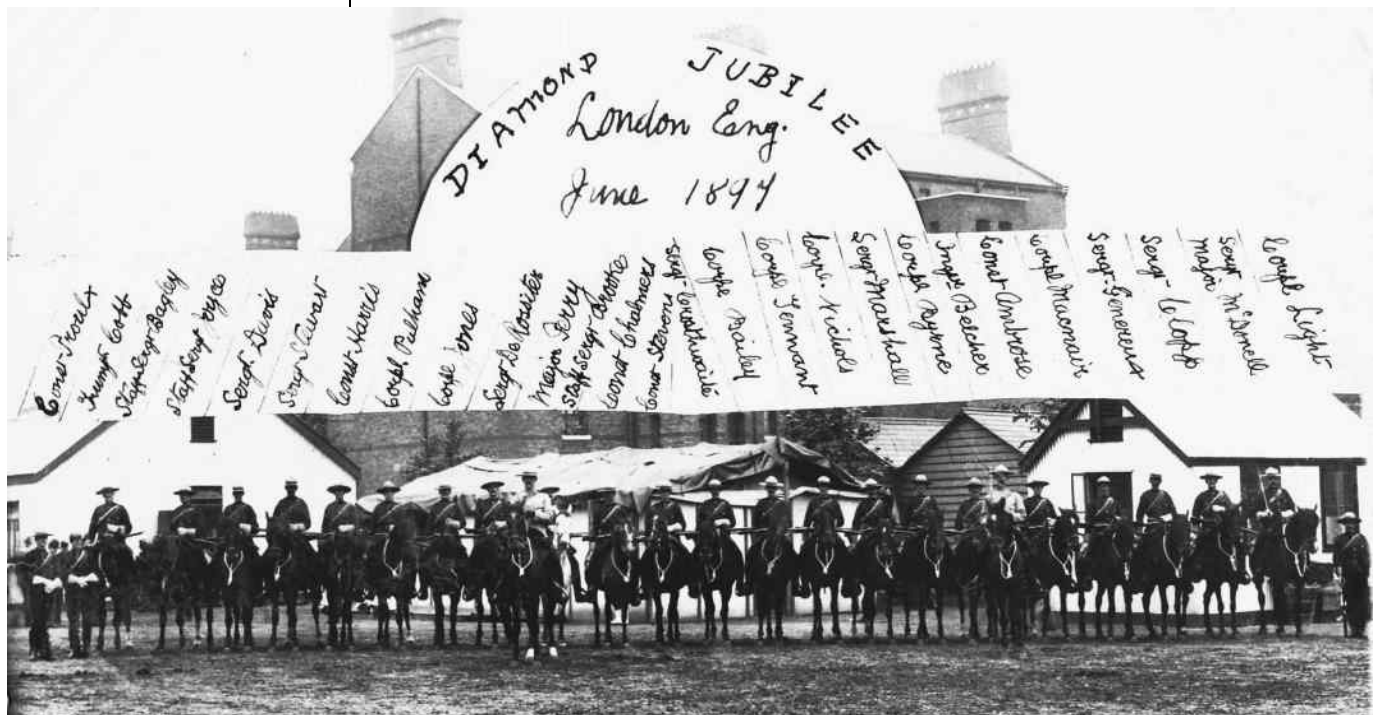 DIAMOND JUBILEE
London Eng.
June 1897
Const Proulx
Trumpt Cobb
Staff Sergt Bagley
Staff Sergt Joyce
Sergt Davis
Sergt Stewart
Const Harris
Corpl Pelham
Corpl Jones
Sergt De Rositer
Major Perry
Staff Sergt Brooke
Const Chalmers
Const Stevens
Sergt Crosthwaite
Corpl Bailey
Corpl Tennant
Corpl. Nichols
Sergt Marshall
Corpl Byrne
Inspr Belcher
Const Ambrose
Corpl Macnair
Sergt Genereux
Sergt
Sergt Major McDnell
Corpl Light